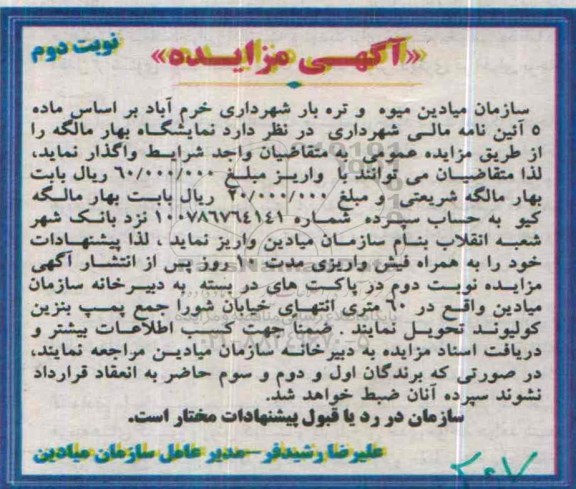 نوبت دوم
«آگهـــی مزایـــده»
سازمان میادین میوه و تره بار شهرداری خرم آباد بر اساس ماده
۵ آئین نامه مالـی شهرداری در نظر دارد نمایشگـاه بهار مالگه را
از طریق مزایده عمومی به متقاضیان واجد شرایـط واگذار نماید،
لذا متقاضیـان می توانند با واریـز مبلـغ ۶۰/۰۰۰/۰۰۰ ریال بابت
بهار مالگه شریعتی و مبلغ ۳۰/۰۰۰/۰۰۰ ریال بابـت بهار مالـگه
کیو به حساب سپـرده شمـاره ۱۰۰۷۸۶۷۶۴۱۴۱ نزد بانـک شهر
شعبـه انقلاب بنـام سازمـان میادین واریز نماید ، لذا پیشنهـادات
خود را به همراه فیش واریزی مدت ۱۰ روز پس از انتشـار آگهی
مزایـده نوبـت دوم در پاکـت های در بسته به دبیـرخانه سازمان
میادین واقـع در ۶۰ متری انتهـای خیابان شورا جمع پمـپ بنزین
کولیونـد تحویـل نمایند . ضمناً جهت کسـب اطلاعـات بیشتر و
دریافت اسناد مزایده به دبیرخانـه سازمان میادیـن مراجعه نمایند،
در صورتی که برندگان اول و دوم و سوم حاضر به انعقاد قرارداد
نشوند سپرده آنان ضبط خواهد شد.
سازمان در رد یا قبول پیشنهادات مختار است.
علیرضا رشیدفر – مدیر عامل سازمان میادین
۰۲۱-۸۸۳۴۹۶۷۰-۵